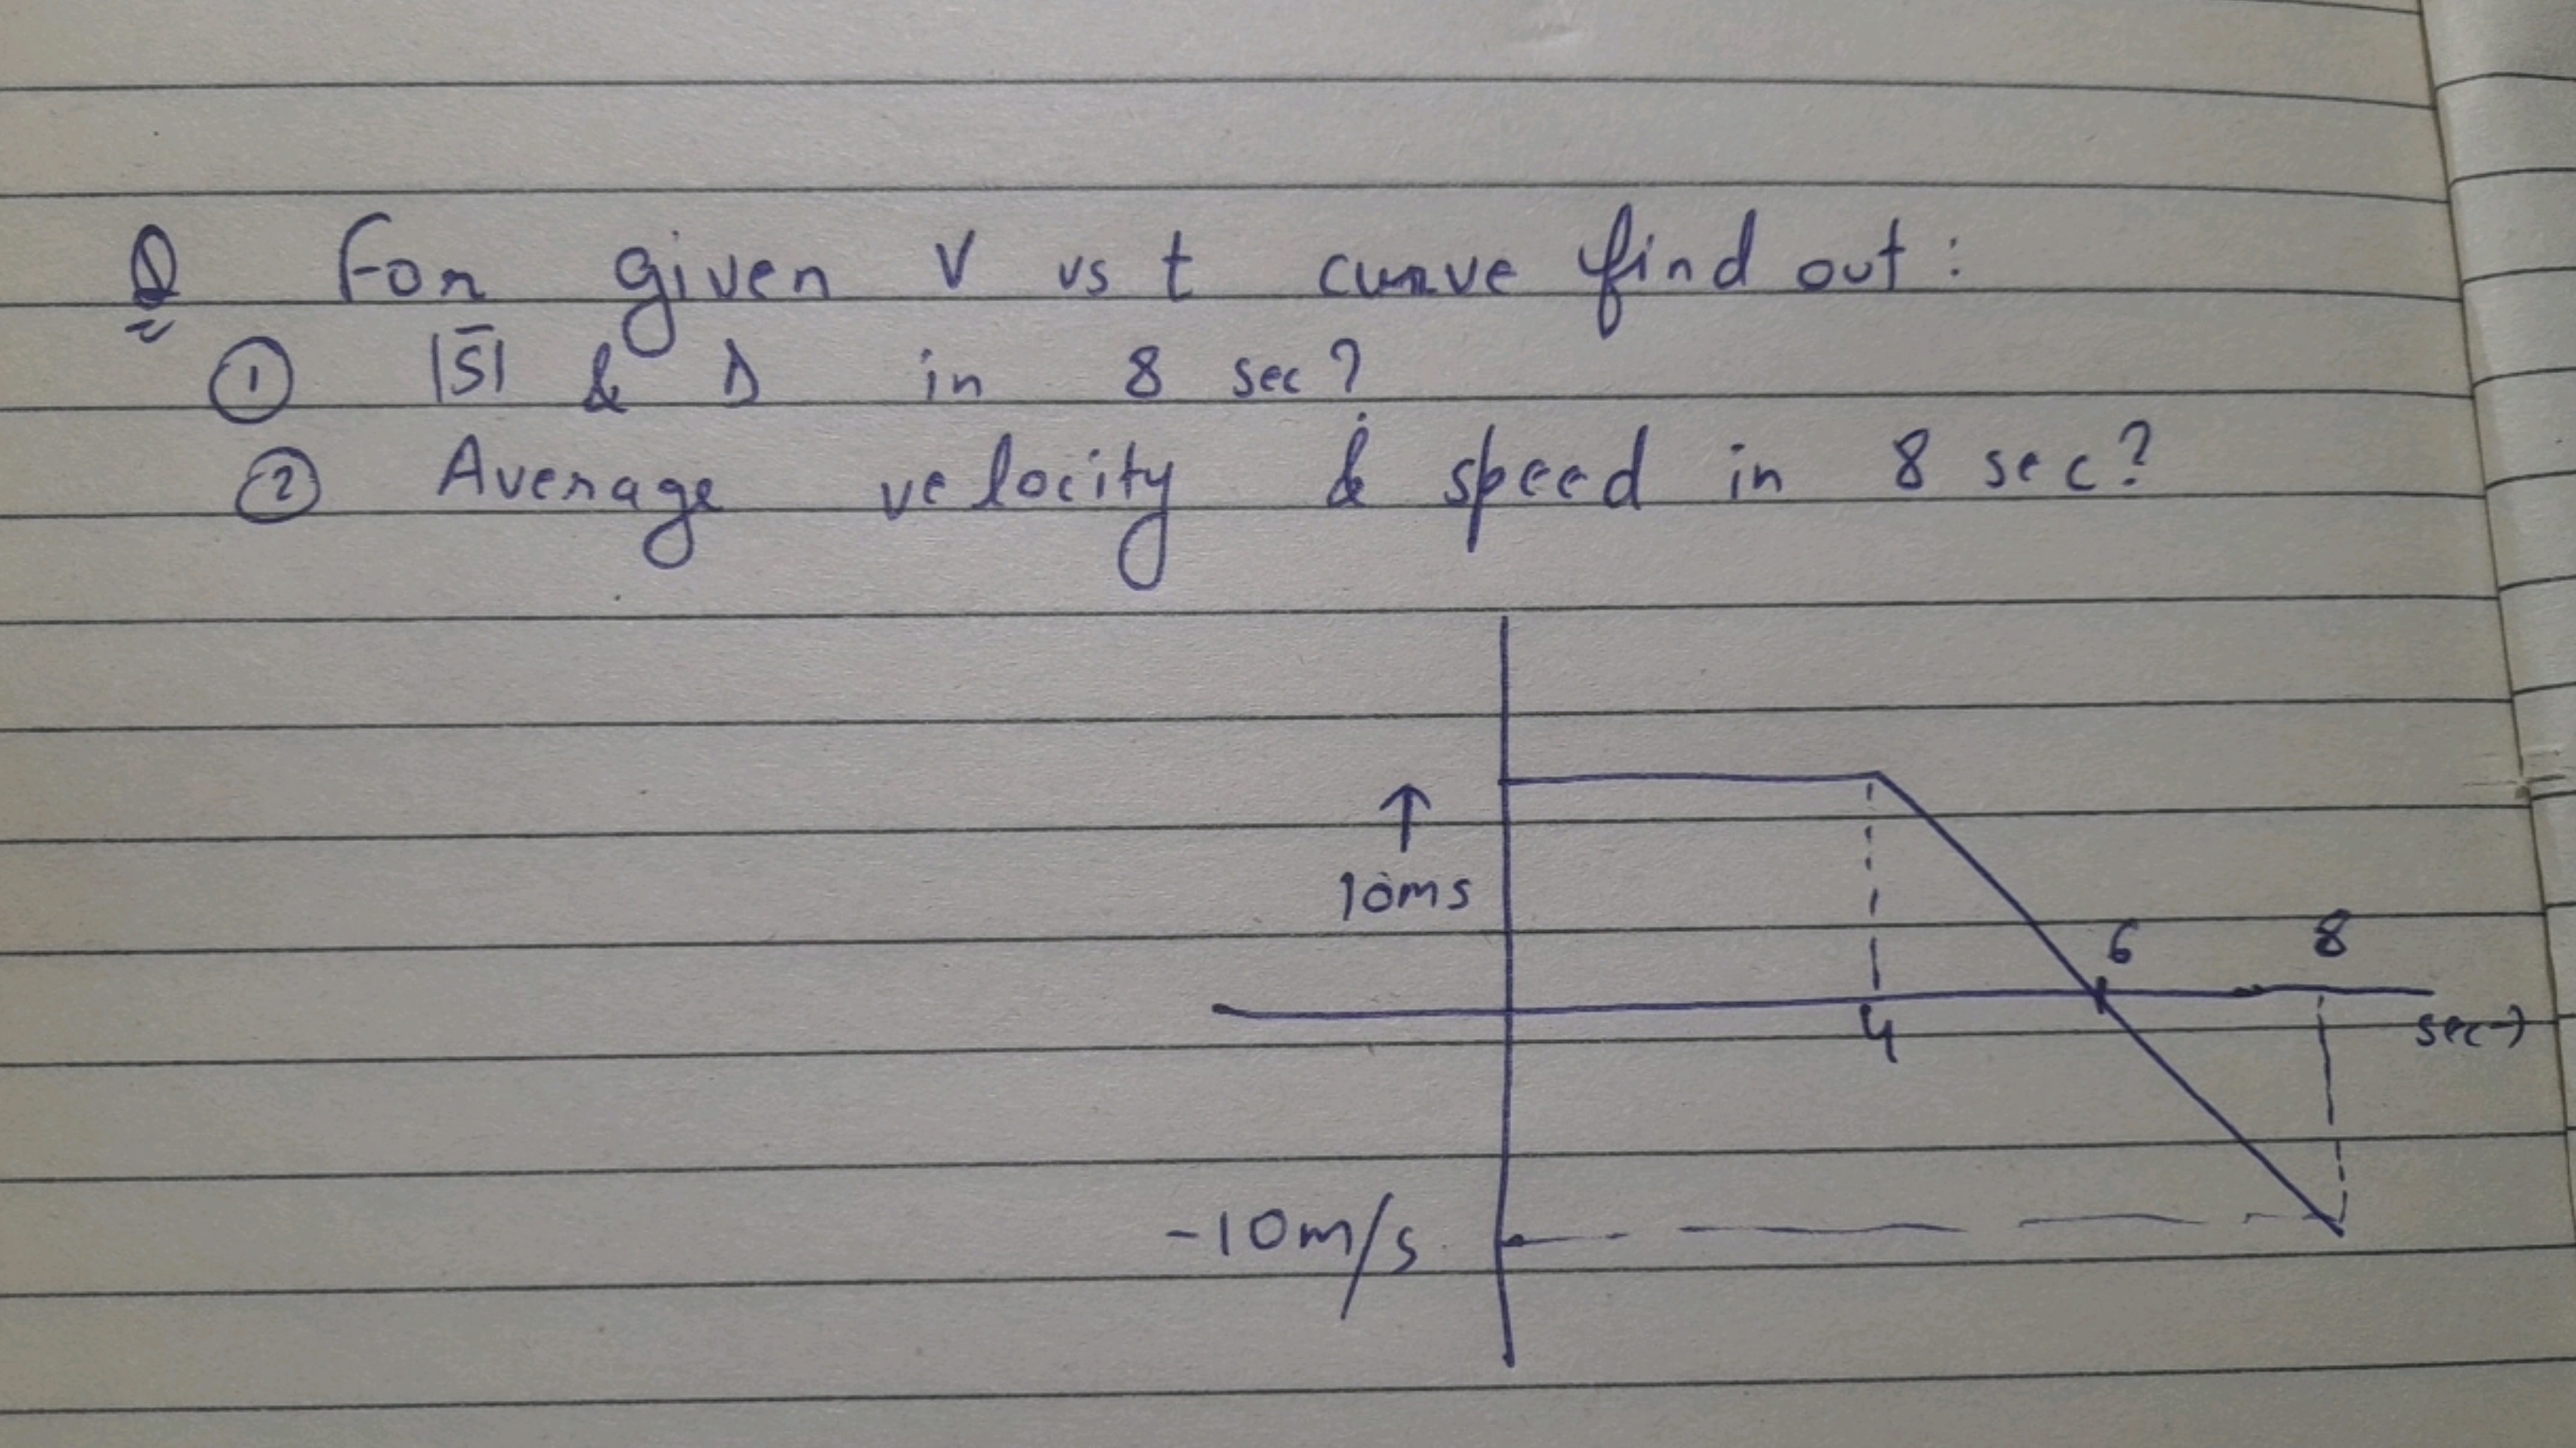 Q For given V vs t curve find out:
① |S̅| & D in 8 sec?
② Average velocity & speed in 8 sec?
↑
10ms
6 8
4
sec→
-10m/s